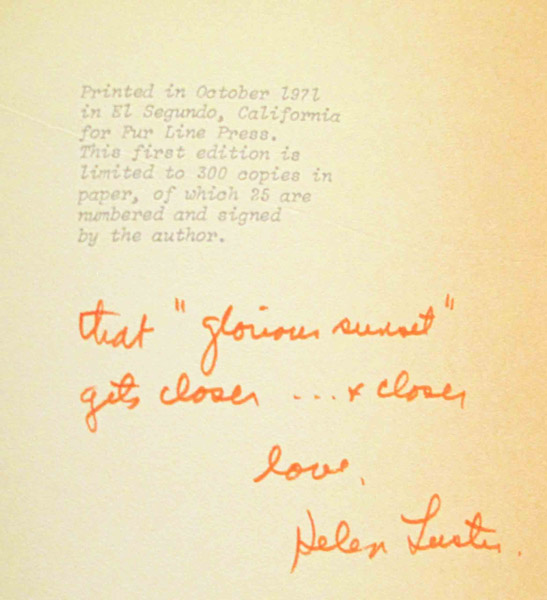 Printed in October 1971
in El Segundo, California
for Fur Line Press.
This first edition is
limited to 300 copies in
paper, of which 25 are
numbered and signed
by the author.
that "glorious sunset"
gets closer ... & closer
love,
Helen Luster.